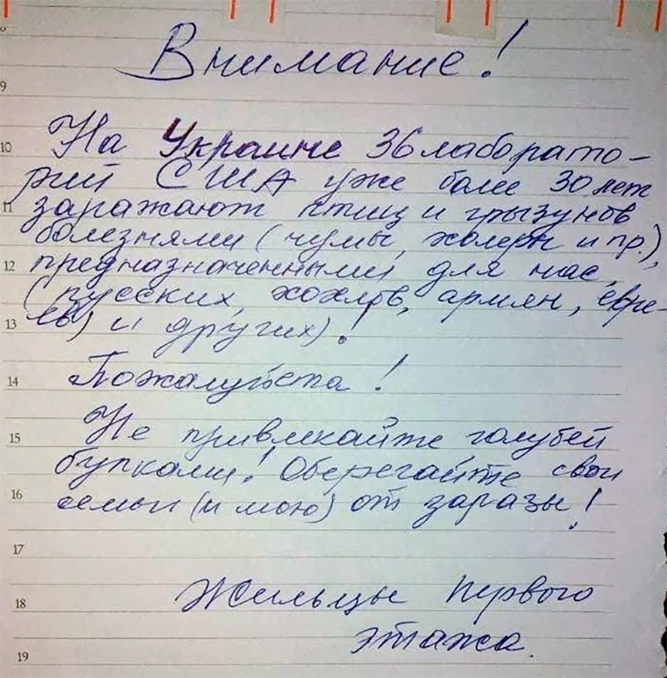 Внимание!
9
10
На Украине 36 лаборато-
рий США уже более 30 лет
11
заражают птиц и грызунов
болезнями (чумы, холеры и пр.),
12
предназначенными для нас,
(русских, хохлов, армян, евре-
13
ев) и других)!
14
Пожалуйста!
15
Не привлекайте голубей
булками! Оберегайте свои
16
семьи (и мою) от заразы!
17
18
Жильцы первого
этажа.
19